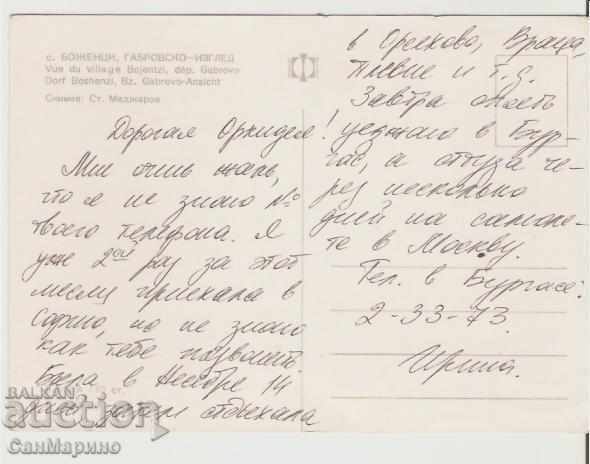 с. БОЖЕНЦИ, ГАБРОВСКО—ИЗГЛЕД
Vue du village Bojentzi, dép. Gabrovo
Dorf Boshenzi, Bz. Gabrovo-Ansicht
Снимка: Ст. Меджаров
Дорогая Орхидея!
Мне очень жаль,
что я не знаю №
твоего телефона. Я
уже 2ой раз за этот
месяц приехала в
Софию, но не знаю
как тебе позвонить.
Была в Несебре 14
дней, затем отдыхала
в Оряхово, Враца,
Плевне и т. д.
Завтра опять
уезжаю в Бур-
гас, а оттуда че-
рез несколько
дней на самоле-
те в Москву.
Тел. в Бургасе:
2-33-73.
Ирина.
BALKAN
auction
СанМарино